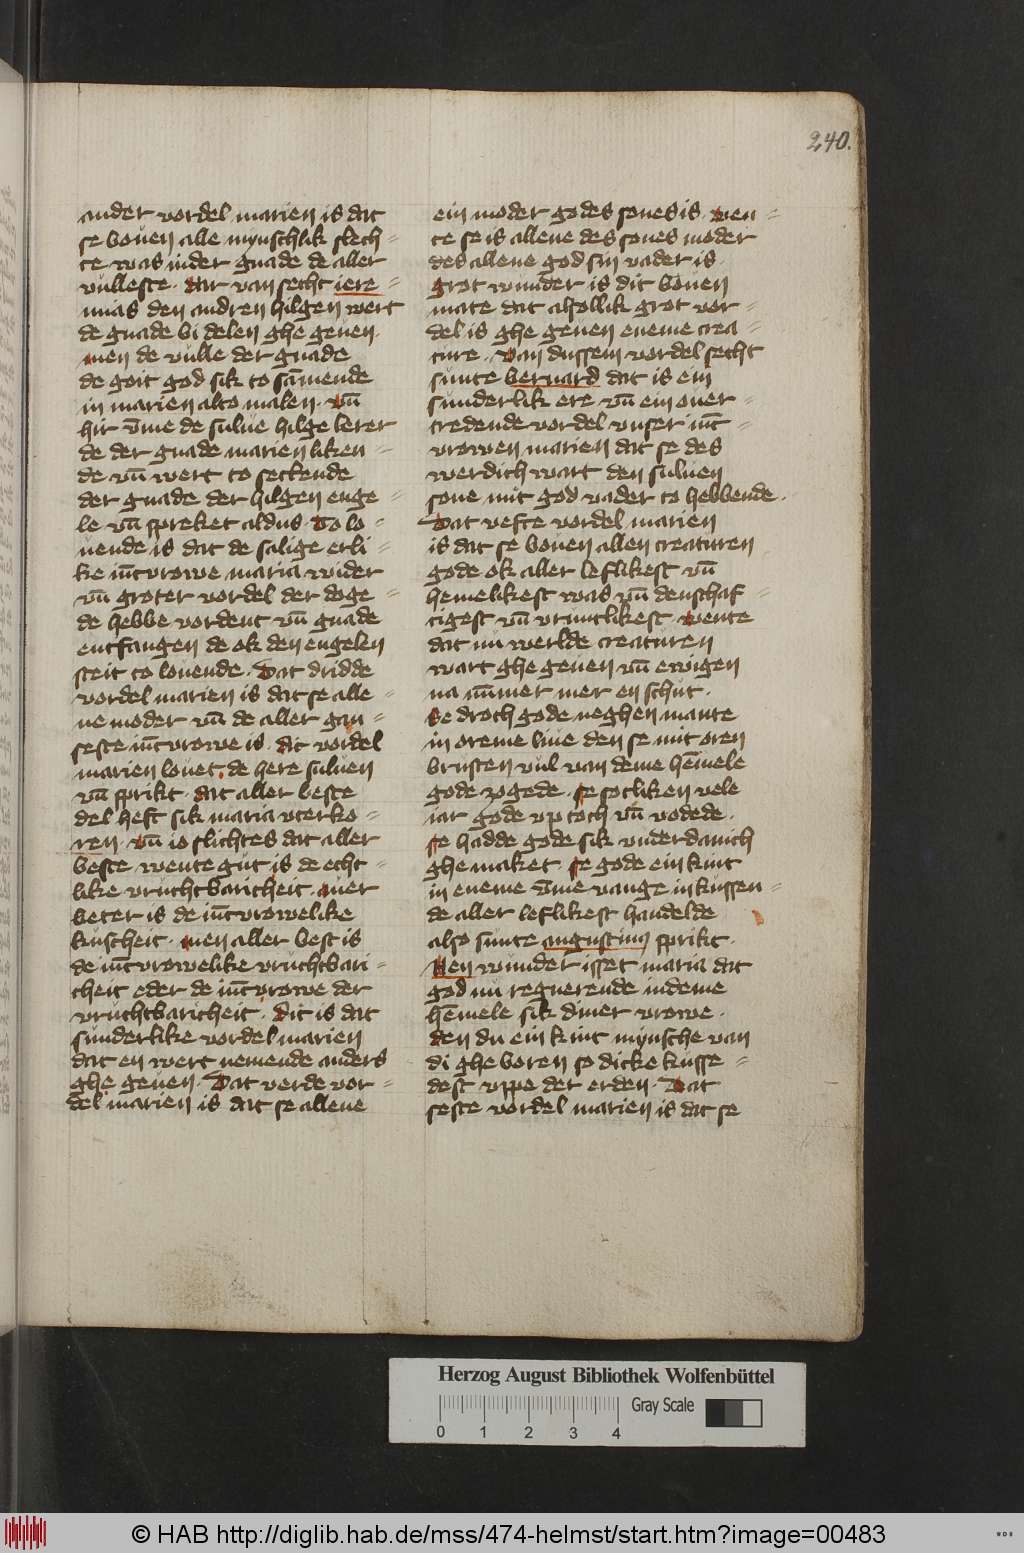 240.
ander vordel marien is dat
se bouen alle mynschlik slech=
te was in der gnade de aller
vulleste. dar van secht iere=
mias den andren hilgen wert
de gnade bi delen ghe geuen.
men de vulle der gnade
de goit god sik to sāmende
in marien alto malen. vn̄
hir v̄me de sulue hilge lerer
de der gnade marien liken=
de vn̄ wert to settende
der gnade der hilgen enge=
le vn̄ spreket aldus. To lo=
uende is dat de salige erli=
ke iūcvrowe maria wider
vn̄ groter vordel der doge=
de hebbe vordent vn̄ gnade
entfangen de ok den engelen
steit to louende. Dat dridde
vordel marien is dat se alle=
ne moder vn̄ de aller gan=
seste iūcvrowe is. dit vordel
marien louet de here suluen
vn̄ sprikt. dat aller beste
del heft sik maria vterko=
ren. vn̄ io slichtes dat aller
beste wente gut is de echt=
like vruchtbaricheit. auer
beter is de iūcvrowelike
kuscheit. men aller best is
de iūcvrowelike vruchtbari=
cheit eder de iūcvrowe der
vruchtbaricheit. Dit is dat
sunderlike vordel marien
dat en wert nemende anders
ghe geuen. Dat verde vor=
del marien is dat se allene
ein moder godes sones is. wen=
te se is allene des sones moder
des allene god sin vader is.
grot wunder is dit bouen
mate dat alsollik grot vor=
del is ghe geuen eneme crea=
ture. van dussem vordel secht
sunte bernard dat is ein
sunderlik ere vn̄ ein ouer=
tredende vordel vnser iūc=
vrowen marien dat se des
werdich wart den suluen
sone mit god vader to hebbende.
Dat vefte vordel marien
is dat se bouen allen creaturen
gode ok aller leflikest vn̄
hemelikest was vn̄ denschaf=
tigest vn̄ vruntlikest. wente
dat nu werlde creaturen
wart ghe geuen vn̄ ewigen
na nūmer mer en schut.
Se droch gode neghen mante
in oreme liue den se mit oren
brusten vul van deme hēmele
gode zogede. se sotliken vele
iar gode vp toch vn̄ vodede.
se hadde gode sik vnderdanich
ghe maket. se gode ein kint
in eneme v̄me vange in kussen=
de aller leflikest handelde
also sunte augustinus sprikt.
Nen wunder isset maria dat
god nu regnerende in deme
hēmele sik diner vrowe.
den du ein kint mynsche van
di ghe boren so dicke kusse=
dest vppe der erden. Dat
seste vordel marien is dat se
Herzog August Bibliothek Wolfenbüttel
Gray Scale
0 1 2 3 4
© HAB http://diglib.hab.de/mss/474-helmst/start.htm?image=00483